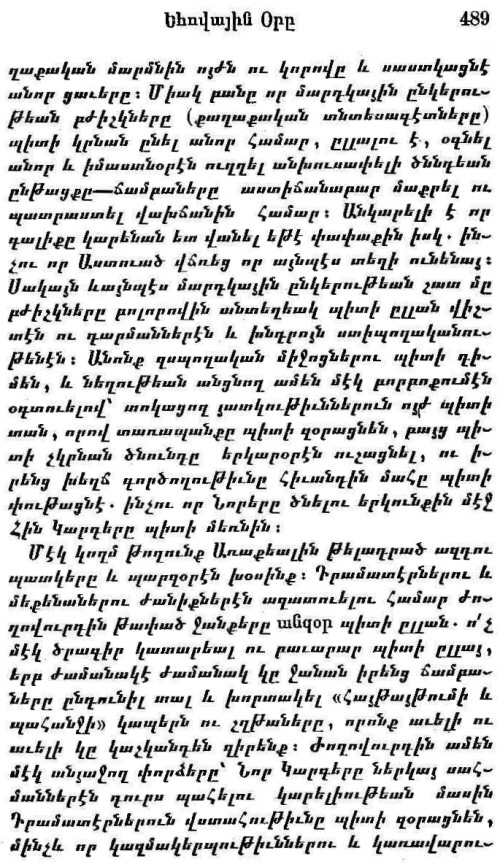 Եհովային Օրը 489
ղաքական մարմնին ոյժն ու կորովը և սաստկացնէ
անոր ցաւերը: Միակ բանը որ մարդկային ընկերու-
թեան բժիշկները (քաղաքական տնտեսագէտները)
պիտի կրնան ընել անոր համար, ըլլալու է, օգնել
անոր և իմաստնօրէն ուղղել անխուսափելի ծննդեան
ընթացքը—ճամբաները աստիճանաբար մաքրել ու
պատրաստել վախճանին համար: Անկարելի է որ
գալիքը կարենան ետ վանել եթէ փափաքին իսկ. ին-
չու որ Աստուած վճռեց որ այնպէս տեղի ունենայ:
Սակայն ևայնպէս մարդկային ընկերութեան շատ մը
բժիշկները բոլորովին անտեղեակ պիտի ըլլան վիշ-
տէն ու դարմաններէն և խնդրոյն ստիպողականու-
թենէն: Անոնք զսպողական միջոցներու պիտի դի-
մեն, և նեղութեան անցնող ամեն մէկ բորբոքումէն
օգտուելով՝ տոկացող յատկութիւններուն ոյժ պիտի
տան, որով տառապանքը պիտի զօրացնեն, բայց պի-
տի չկրնան ծնունդը երկարօրէն ուշացնել, ու ի-
րենց խեղճ գործողութիւնը հիւանդին մահը պիտի
փութացնէ. ինչու որ Նորերը ծնելու երկունքին մէջ
Հին Կարգերը պիտի մեռնին:
Մէկ կողմ թողունք Առաքեալին թելադրած ազդու
պատկերը և պարզօրէն խօսինք: Դրամատէրներու և
մեքենաներու ժանիքներէն ազատուելու համար ժո-
ղովուրդին թափած ջանքերը անզօր պիտի ըլլան. ո՛չ
մէկ ծրագիր կատարեալ ու բաւարար պիտի ըլլայ,
երբ ժամանակէ ժամանակ կը ջանան իրենց ճամբա-
ները ընդունիլ տալ և խորտակել «Հայթայթումի և
պահանջի» կապերն ու շղթաները, որոնք աւելի ու
աւելի կը կաշկանդեն զիրենք: Ժողովուրդին ամեն
մէկ անյաջող փորձերը՝ Նոր Կարգերը ներկայ սահ-
մաններէն դուրս պահելու կարելիութեան մասին
Դրամատէրներուն վստահութիւնը պիտի զօրացնեն,
մինչև որ կազմակերպութիւններու և կառավարու-